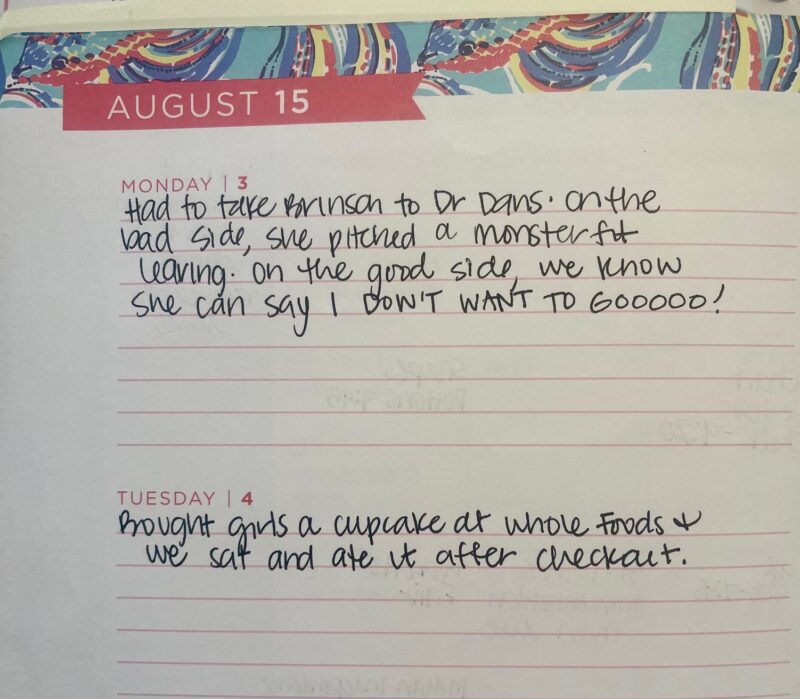 AUGUST 15
MONDAY | 3
Had to take Brinson to Dr Dans. On the
bad side, she pitched a monster fit
leaving. On the good side, we know
she can say I DON'T WANT TO GOOOOO!
TUESDAY | 4
Bought girls a cupcake at Whole Foods &
we sat and ate it after checkout.